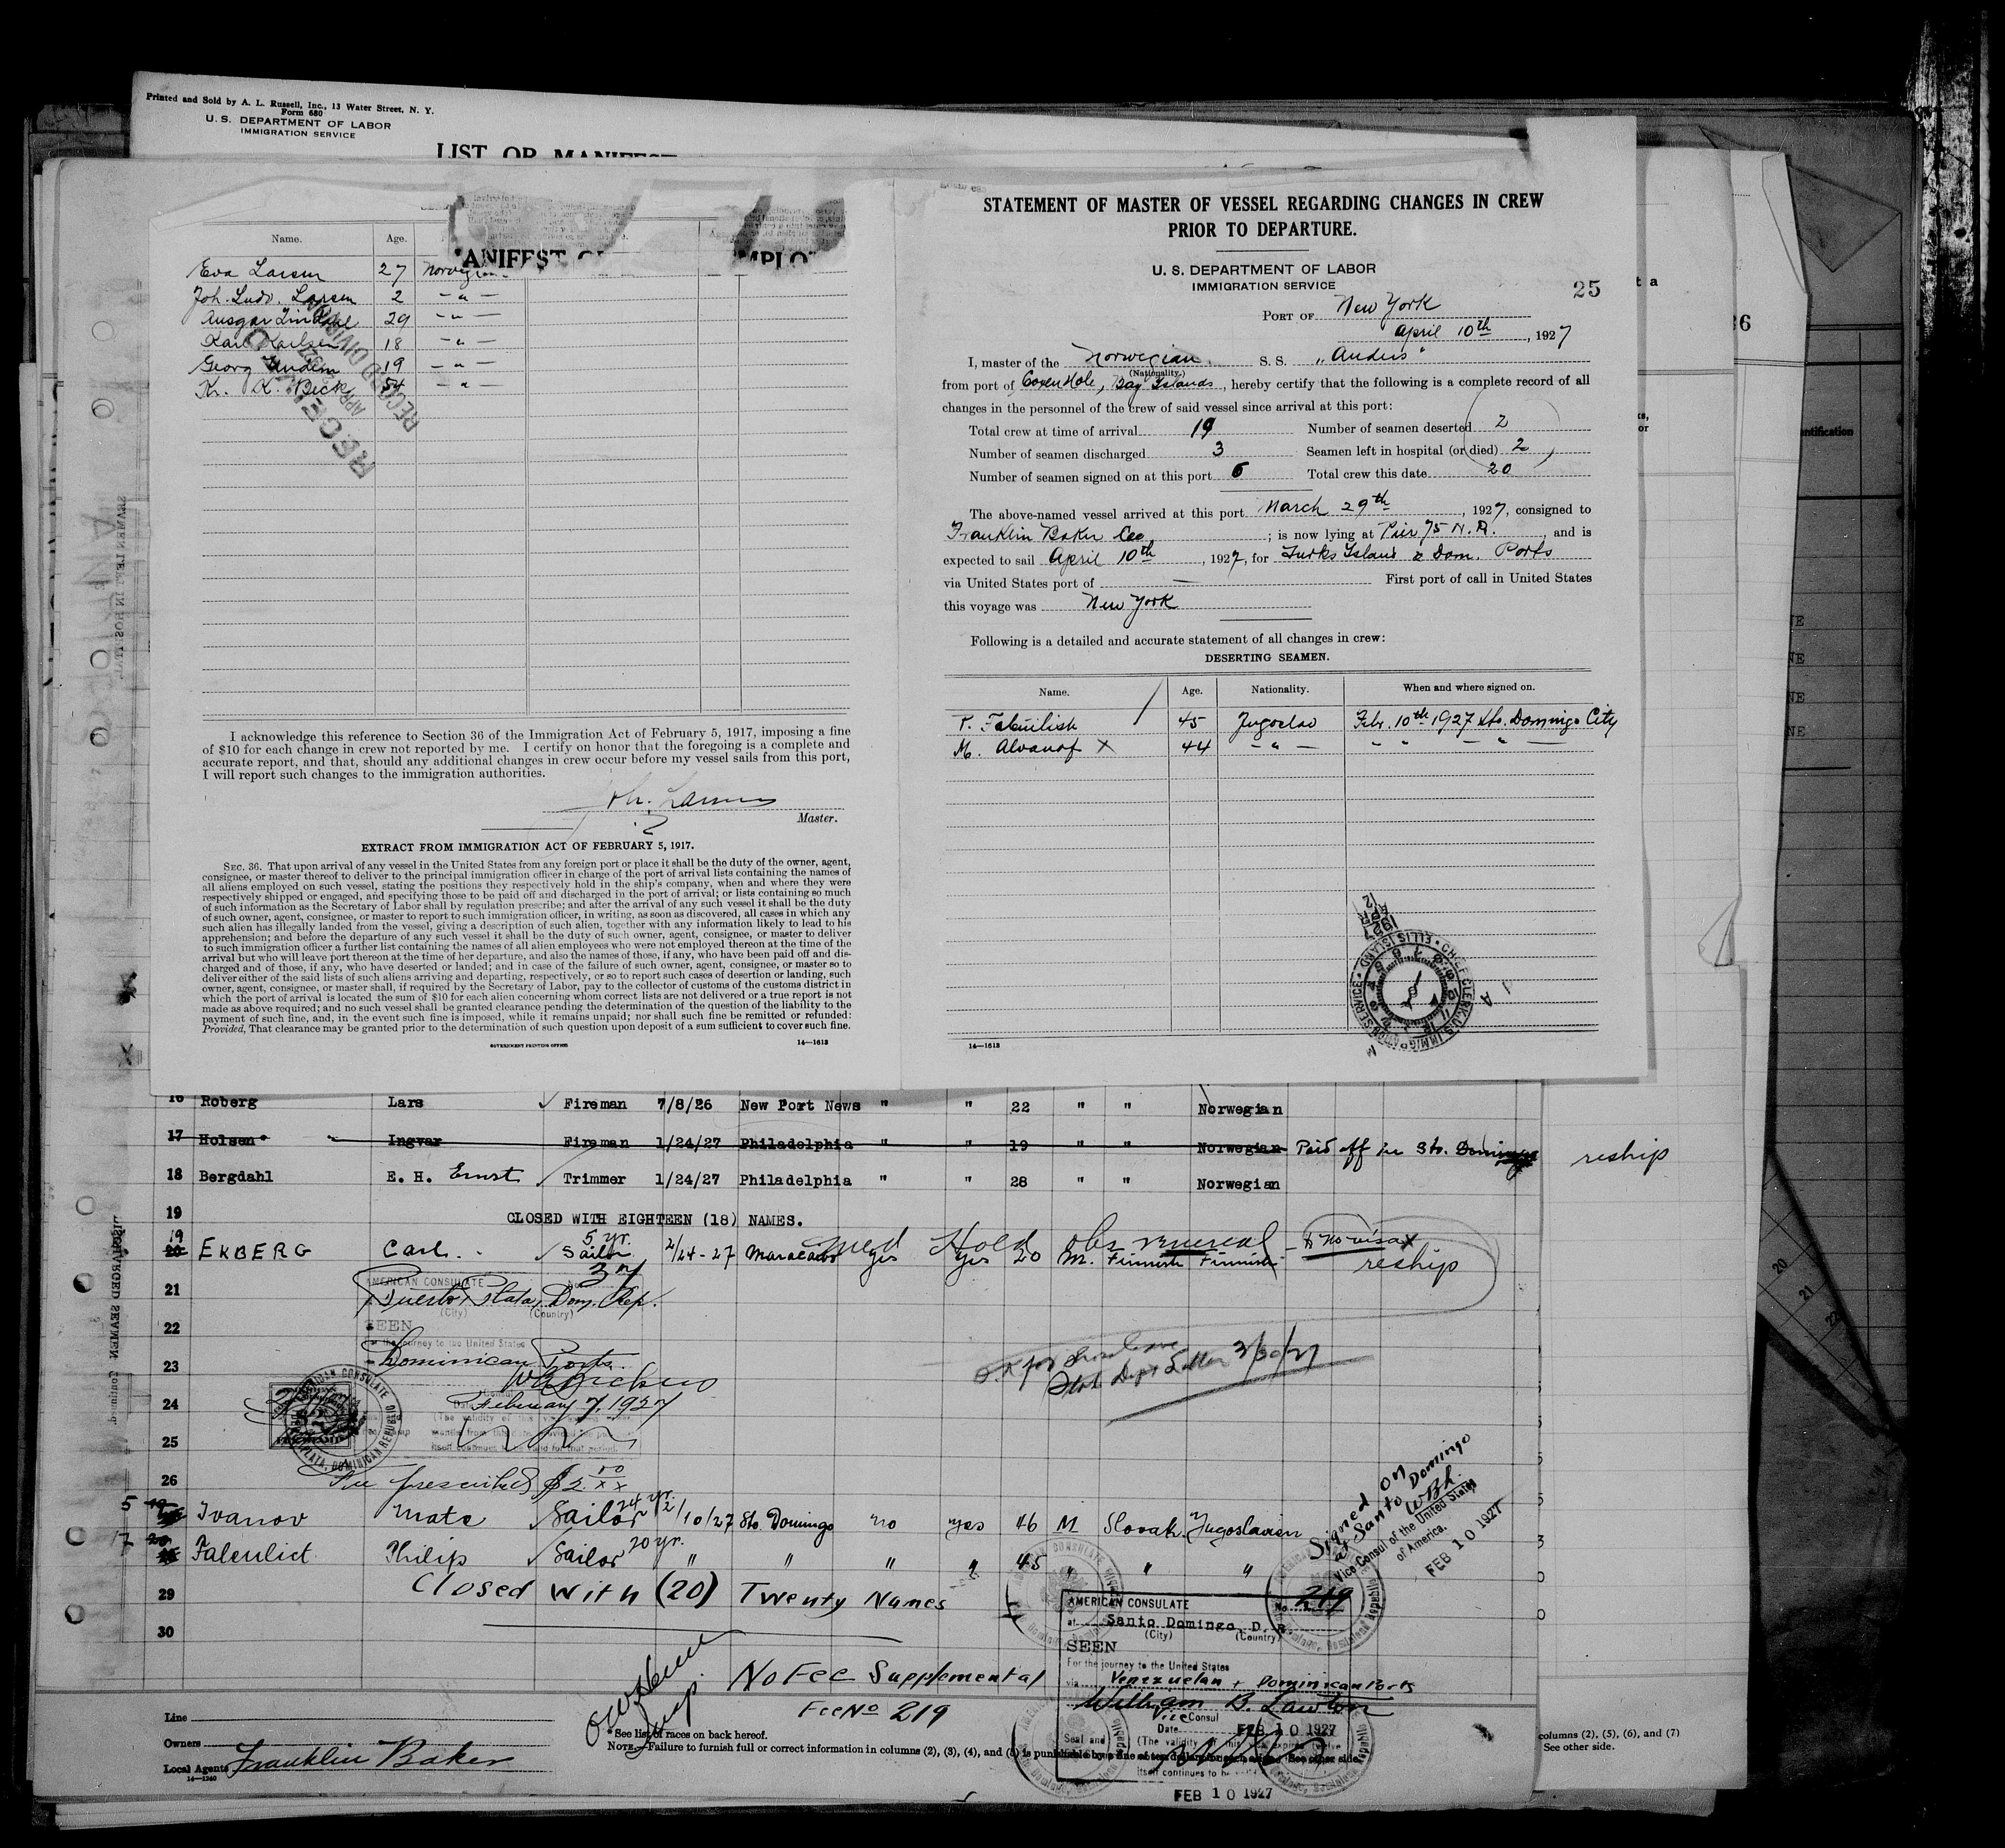 Printed and Sold by A. L. Russell, Inc., 13 Water Street, N. Y.
Form 680
U. S. DEPARTMENT OF LABOR
IMMIGRATION SERVICE
LIST OR MANIFEST
ANIFEST
MPLO
Name. Age.
Eva Larsen 27 Norwegian
Joh. Ludv. Larsen 2 — " —
Ansgar Lindahl 29 — " —
Karl Karlsen 18 — " —
Georg 19 — " —
Kr. K. Beck 54 — " —
RECEIVED
RECORD DIVISION
APR
I acknowledge this reference to Section 36 of the Immigration Act of February 5, 1917, imposing a fine
of $10 for each change in crew not reported by me. I certify on honor that the foregoing is a complete and
accurate report, and that, should any additional changes in crew occur before my vessel sails from this port,
I will report such changes to the immigration authorities.
Larsen
Master.
EXTRACT FROM IMMIGRATION ACT OF FEBRUARY 5, 1917.
SEC. 36. That upon arrival of any vessel in the United States from any foreign port or place it shall be the duty of the owner, agent,
consignee, or master thereof to deliver to the principal immigration officer in charge of the port of arrival lists containing the names of
all aliens employed on such vessel, stating the positions they respectively hold in the ship's company, when and where they were
respectively shipped or engaged, and specifying those to be paid off and discharged in the port of arrival; or lists containing so much
of such information as the Secretary of Labor shall by regulation prescribe; and after the arrival of any such vessel it shall be the duty
of such owner, agent, consignee, or master to report to such immigration officer, in writing, as soon as discovered, all cases in which any
such alien has illegally landed from the vessel, giving a description of such alien, together with any information likely to lead to his
apprehension; and before the departure of any such vessel it shall be the duty of such owner, agent, consignee, or master to deliver
to such immigration officer a further list containing the names of all alien employees who were not employed thereon at the time of the
arrival but who will leave port thereon at the time of her departure, and also the names of those, if any, who have been paid off and dis-
charged and of those, if any, who have deserted or landed; and in case of the failure of such owner, agent, consignee, or master so to
deliver either of the said lists of such aliens arriving and departing, respectively, or so to report such cases of desertion or landing, such
owner, agent, consignee, or master shall, if required by the Secretary of Labor, pay to the collector of customs of the customs district in
which the port of arrival is located the sum of $10 for each alien concerning whom correct lists are not delivered or a true report is not
made as above required; and no such vessel shall be granted clearance pending the determination of the question of the liability to the
payment of such fine, and, in the event such fine is imposed, while it remains unpaid; nor shall such fine be remitted or refunded:
Provided, That clearance may be granted prior to the determination of such question upon deposit of a sum sufficient to cover such fine.
GOVERNMENT PRINTING OFFICE 14—1613
STATEMENT OF MASTER OF VESSEL REGARDING CHANGES IN CREW
PRIOR TO DEPARTURE.
U. S. DEPARTMENT OF LABOR
IMMIGRATION SERVICE
25
PORT OF New York
April 10th, 1927
I, master of the Norwegian S. S. "Anders"
(Nationality.)
from port of Coxen Hole, Bay Islands, hereby certify that the following is a complete record of all
changes in the personnel of the crew of said vessel since arrival at this port:
Total crew at time of arrival 19 Number of seamen deserted 2
Number of seamen discharged 3 Seamen left in hospital (or died) 2
Number of seamen signed on at this port 6 Total crew this date 20
The above-named vessel arrived at this port March 29th, 1927, consigned to
Franklin Baker Coo; is now lying at Pier 75 N. R., and is
expected to sail April 10th, 1927, for Turks Island & Dom. Ports
via United States port of — First port of call in United States
this voyage was New York
Following is a detailed and accurate statement of all changes in crew:
DESERTING SEAMEN.
Name. Age. Nationality. When and where signed on.
45 Jugoslav Febr. 10th 1927 Sto. Domingo City
M. Alvanof X 44 — " — " " — " —
1927 APR 12
CHIEF CLERK, U.S. IMMIGRATION SERVICE • ELLIS ISLAND •
14—1613
16 Roberg Lars Fireman 7/8/26 New Port News " " 22 " " Norwegian
17 Holsen Ingvar Fireman 1/24/27 Philadelphia " " 19 " " Norwegian Paid off in Sto. Domingo reship
18 Bergdahl E. H. Ernst Trimmer 1/24/27 Philadelphia " " 28 " " Norwegian
19 CLOSED WITH EIGHTEEN (18) NAMES.
Med Hold obs venereal
19 20 EKBERG Carl. 5 yr. Sailor 2/24-27 Maracaibo yes yes 20 M. Finnish Finnish no visa X
reship
21
AMERICAN CONSULATE No. 37
Puerto Plata, Dom. Rep.
(City) (Country)
22
SEEN
the journey to the United States
23
Dominican Ports.
24
February 7, 1927
25
AMERICAN CONSULATE
PLATA, DOMINICAN REPUBLIC
State Dept Letter 3/30/27
26
Fee prescribed $2.00
5 Ivanov Mate Sailor 24 yr. 2/10/27 Sto. Domingo no yes 46 M Slovak. Jugoslavien
17 Falculict Philip Sailor 20 yr. " " " " 45 " " "
29 Closed with (20) Twenty Names
30
Signed on
at Santo Domingo
WBL.
Vice Consul of the United States
of America.
FEB 10 1927
AMERICAN CONSULATE No. 219
at Santo Domingo, D. R.
(City) (Country)
SEEN
For the journey to the United States
via Venezuelan + Dominican Ports
William B. Lawton
Vice Consul
Date FEB 10 1927
FEB 10 1927
No Fee Supplemental
Fee No 219
Line
Owners
Local Agents Franklin Baker
14—1240
* See list of races on back hereof.
NOTE.—Failure to furnish full or correct information in columns (2), (3), (4), and (5) is punishable by a fine of ten dollars See other side.
columns (2), (5), (6), and (7)
See other side.
entification
20
21
22